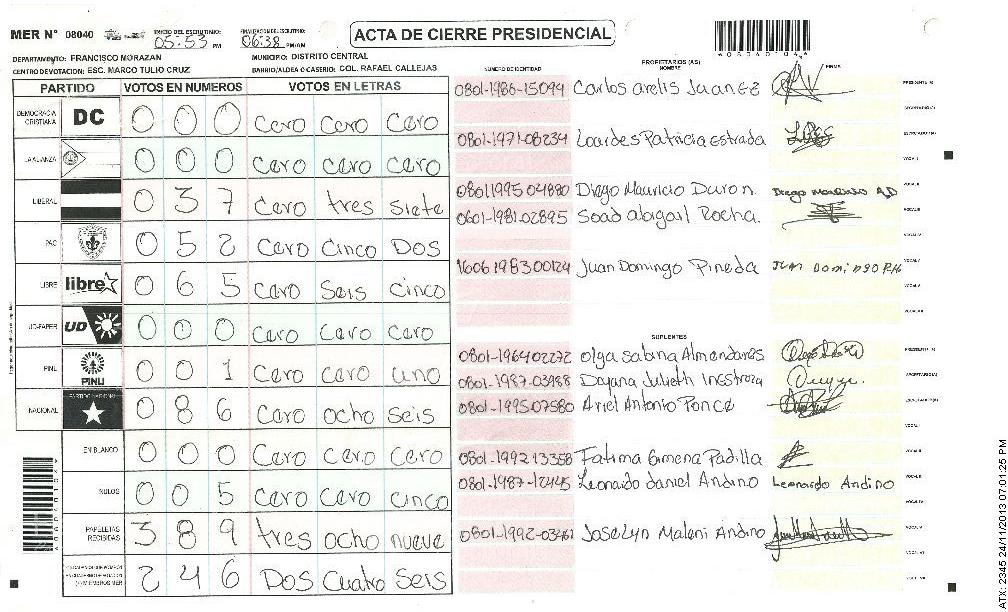 MER N° 08040
INICIO DEL ESCRUTINIO: 05:53 PM
FINALIZACION DEL ESCRUTINIO: 06:38 PM/AM
ACTA DE CIERRE PRESIDENCIAL
DEPARTAMENTO: FRANCISCO MORAZAN
MUNICIPIO: DISTRITO CENTRAL
CENTRO DE VOTACION: ESC. MARCO TULIO CRUZ
BARRIO/ALDEA O CASERIO: COL. RAFAEL CALLEJAS
PARTIDO VOTOS EN NUMEROS VOTOS EN LETRAS
DEMOCRACIA CRISTIANA DC 0 0 0 Cero Cero Cero
LA ALIANZA 0 0 0 Cero cero cero
LIBERAL 0 3 7 Cero tres siete
PAC 0 5 2 Cero Cinco Dos
LIBRE libre 0 6 5 Cero Seis cinco
UD-FAPER UD 0 0 0 Cero Cero Cero
PINU PINU 0 0 1 Cero cero uno
NACIONAL PARTIDO NACIONAL 0 8 6 Cero ocho seis
EN BLANCO 0 0 0 Cero Cero Cero
NULOS 0 0 5 Cero Cero cinco
PAPELETAS RECIBIDAS 3 8 9 tres ocho nueve
2 4 6 Dos Cuatro Seis
NUMERO DE IDENTIDAD PROPIETARIOS (AS) NOMBRE FIRMA
0801-1986-15099 Carlos arelis Juanez
0801-1971-08234 Lourdes Patricia estrada
0801199504880 Diego Mauricio Duron.
0601-1981-02895 Soad abigail Rocha.
1606198300124 Juan Domingo Pineda Juan Domingo
SUPLENTES
0801-196402272 olga sabina Almendares
0801-1987-03988 Dayana Julieth Inestroza
0801-199507580 Ariel Antonio Ponce
0801-199213358 Fatima Gimena Padilla
0801-1987-12445 Leonardo daniel Andino Leonardo Andino
0801-1992-03461 Joselyn Maleni Andino
ATX: 2345 24/11/2013 07:01:25 PM